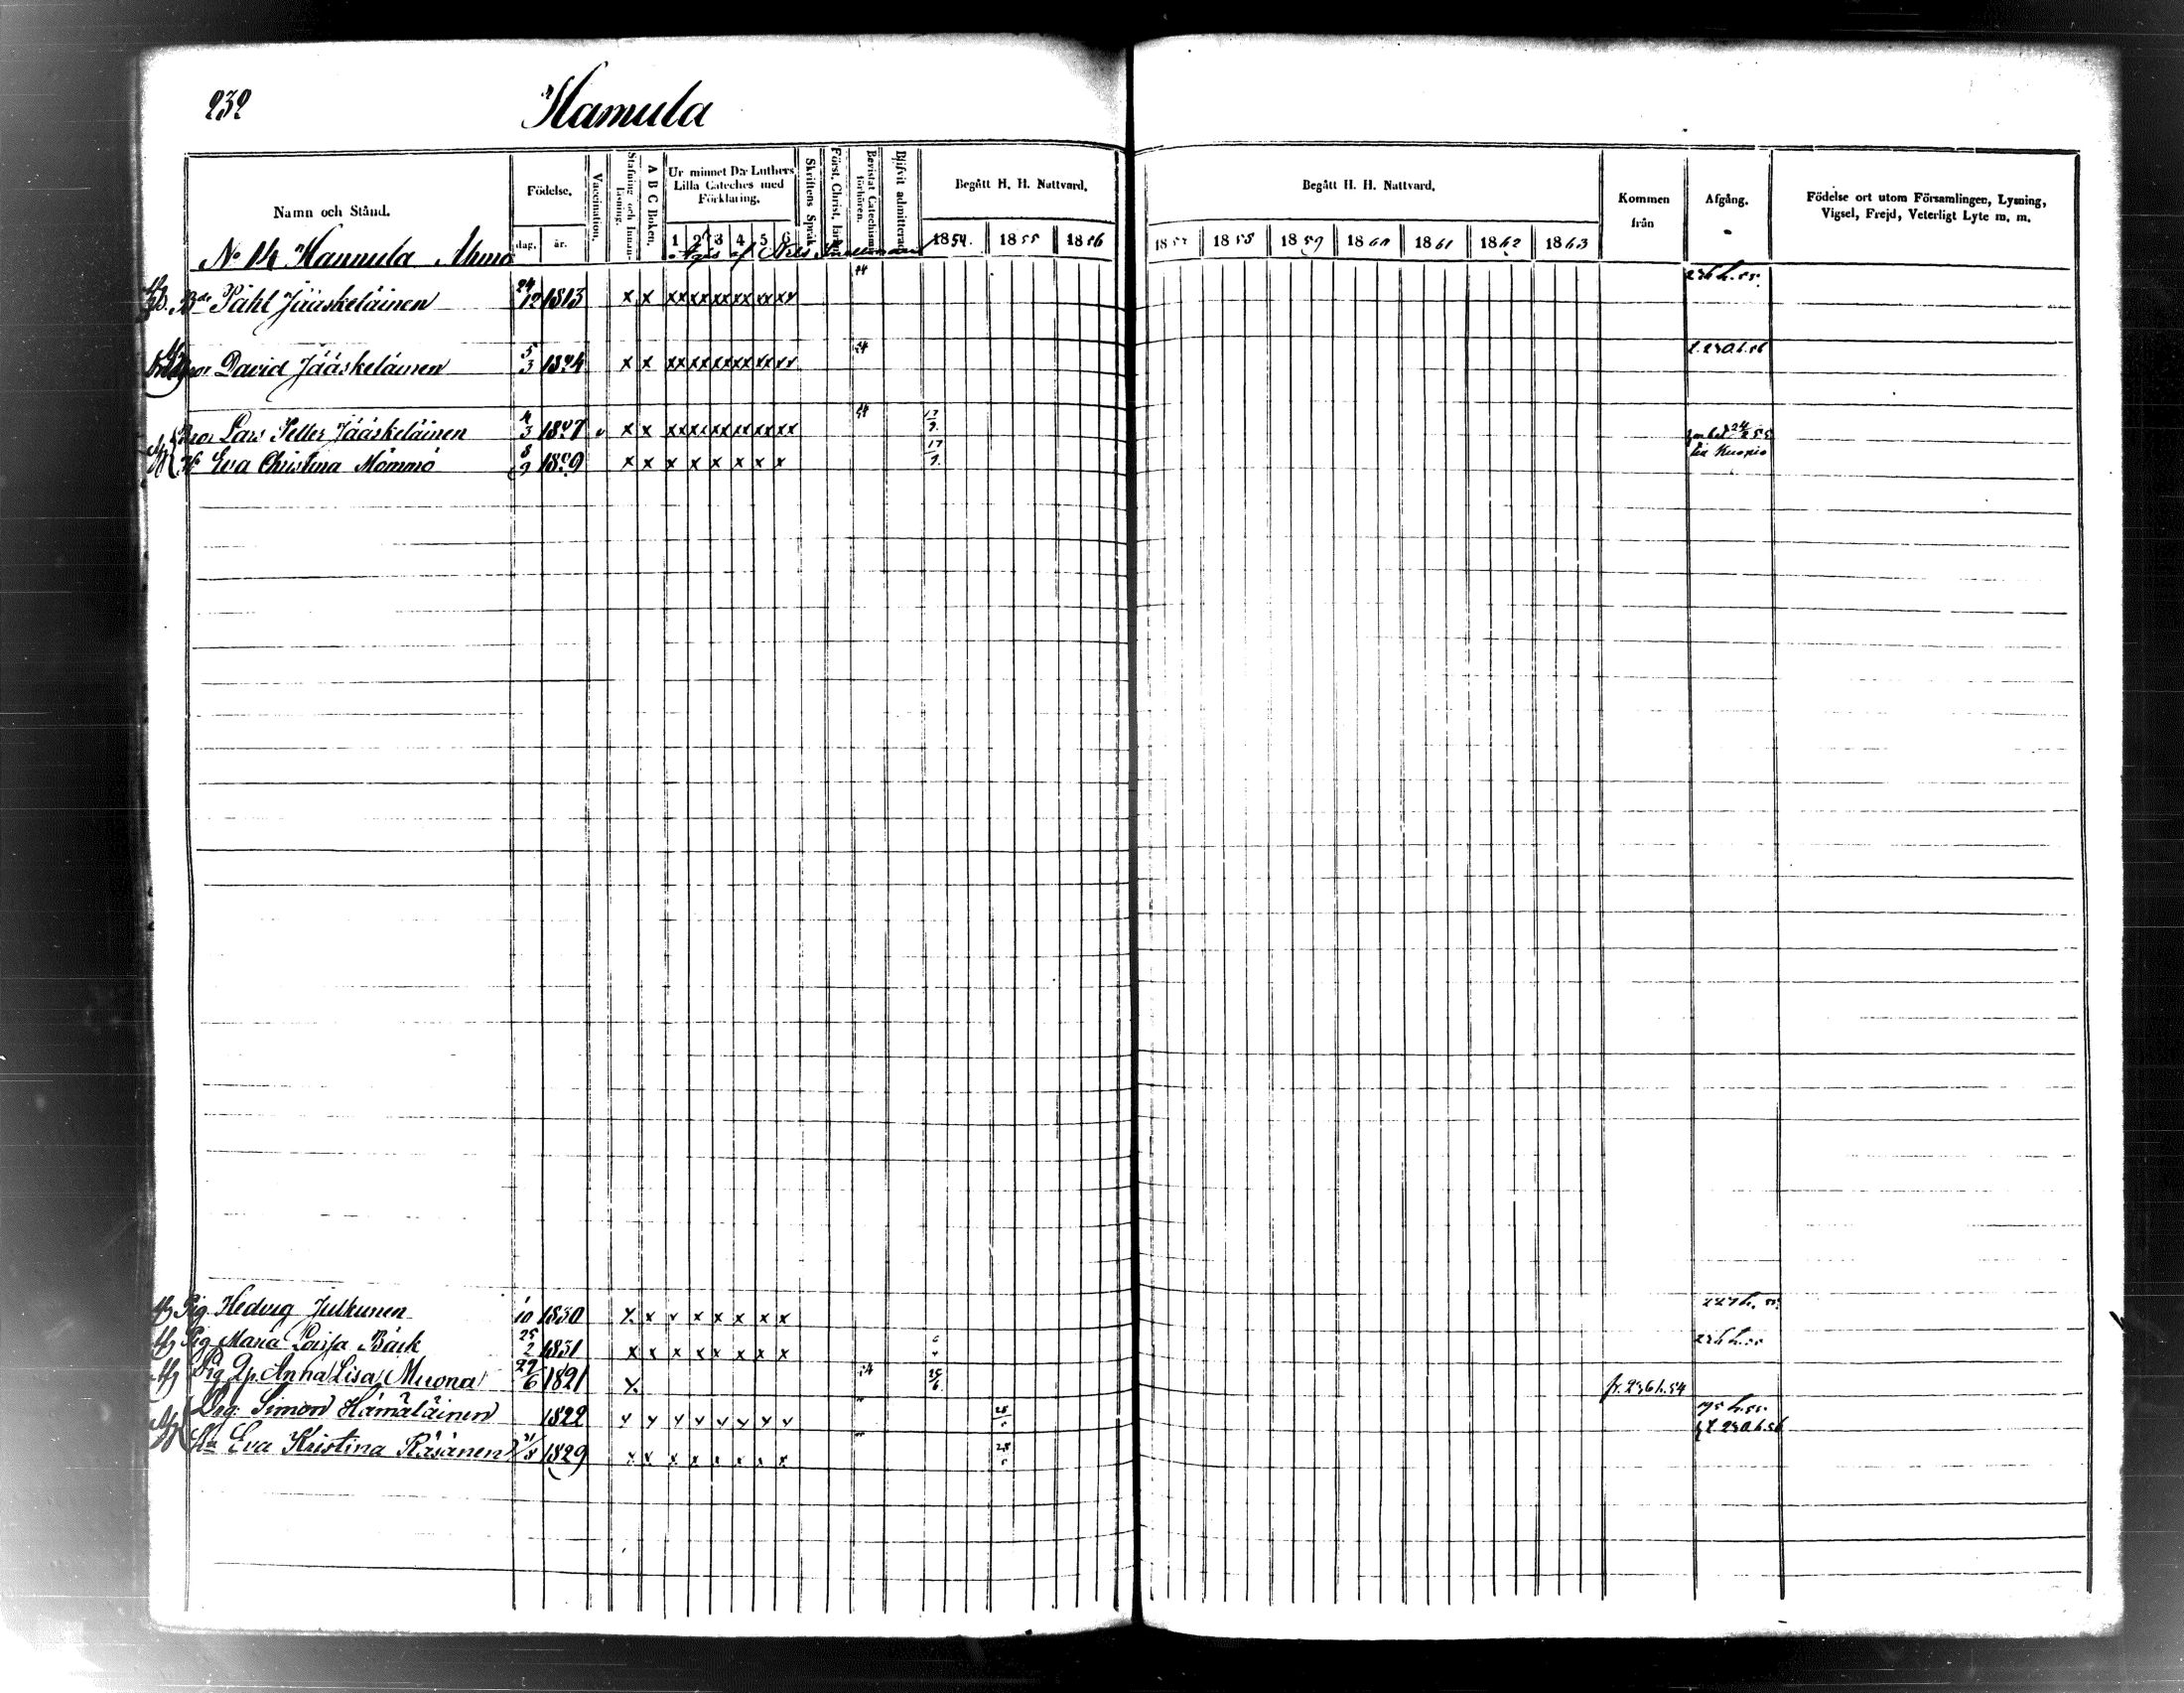 232
Hamula
Namn och Stånd.
Födelse.
dag. år.
Vaccination.
Stafning och Innan-läsning.
A B C Boken.
Ur minnet Dr Luthers Lilla Cateches med Förklaring.
1 2 3 4 5 6
Skriftens Språk
Först. Christ. lära
Bevistat Catechismi förhören.
Blifvit admitterad
Begått H. H. Nattvard.
1854. 1855 1856
Begått H. H. Nattvard.
1857 1858 1859 1860 1861 1862 1863
Kommen från
Afgång.
Födelse ort utom Församlingen, Lysning, Vigsel, Frejd, Veterligt Lyte m. m.
No 14 Hannula Ahmo
Äges af Nils
Påhl Jääskeläinen 24/12 1813 x x xx xx xx xx xx xx 54 236 h. 55.
David Jääskeläinen 5/3 1824 x x xx xx xx xx xx xx 54 f. 230 h. 56
Bror Lars Petter Jääskeläinen 4/3 1827 v x x xx xx xx xx xx xx 54 17/9. 24/2 55
H. Eva Christina Mömmö 8/9 1829 x x x x x x x x 17/9. till Kuopio
Pig. Hedvig Julkunen 1/10 1830 x x x x x x x x 227 h. 55.
Pig Maria Loisa Bäck 25/2 1831 x x x x x x x x 236 h. 55
Pig Anna Lisa Muona 29/6 1821 x 54 25/6. fr. 236 h. 54
Drg. Simon Hämäläinen 1822 x x x x x x x x 28/5 195 h. 55.
Eva Kristina Räsänen 1829 x x x x x x x x 28/5 f. 230 h. 56